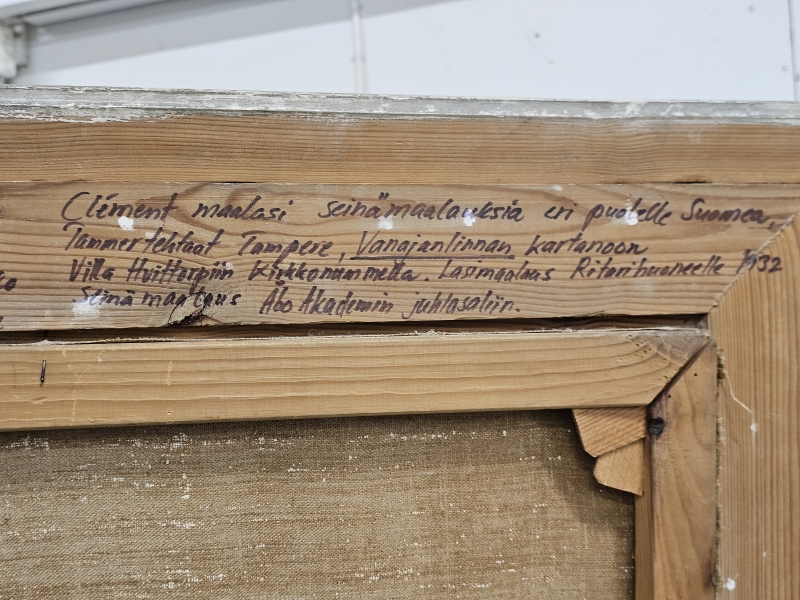 Clément maalasi seinämaalauksia eri puolelle Suomea,
Tammertehtaat Tampere, Vanajanlinnan kartanoon
Villa Hvittorpiin Kirkkonummella. Lasimaalaus Ritarihuoneelle 1932
Seinämaalaus Åbo Akademin juhlasaliin.